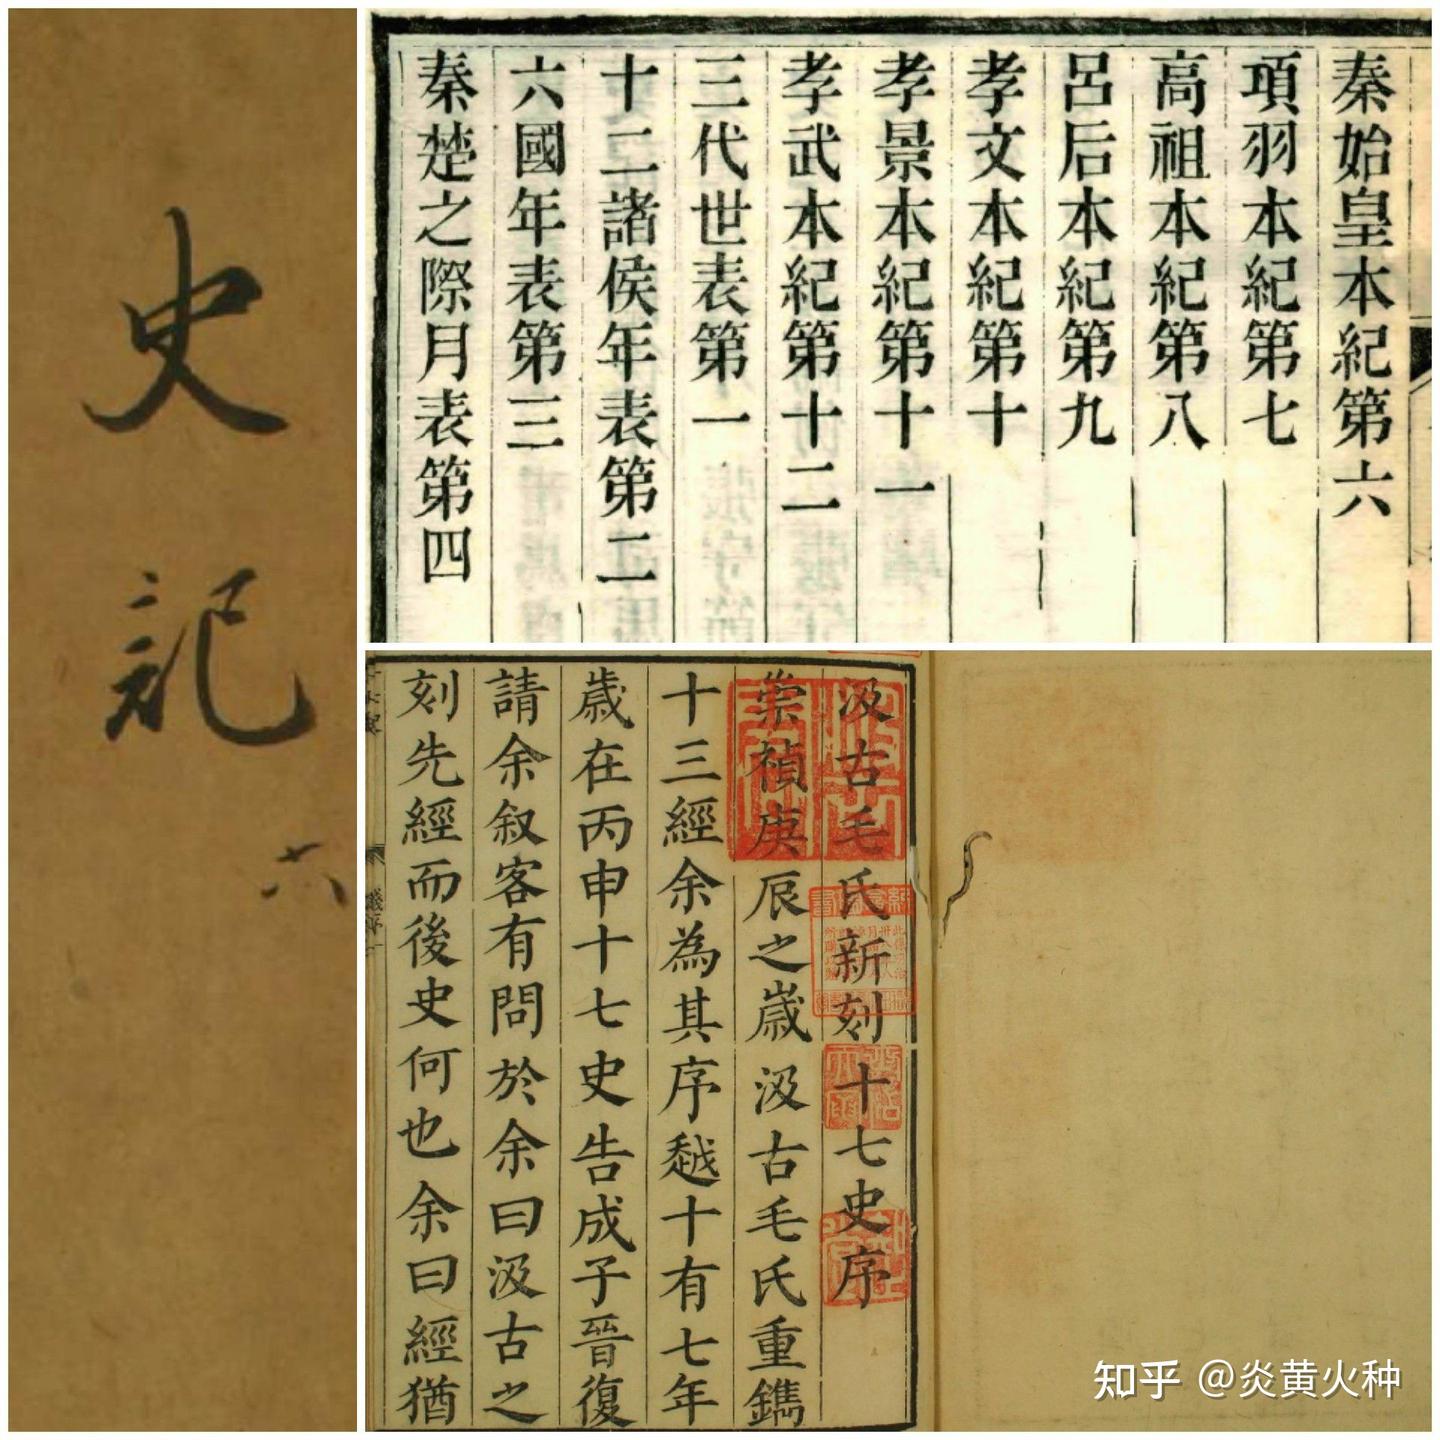 史記
六
秦始皇本紀第六
項羽本紀第七
高祖本紀第八
呂后本紀第九
孝文本紀第十
孝景本紀第十一
孝武本紀第十二
三代世表第一
十二諸侯年表第二
六國年表第三
秦楚之際月表第四
汲古毛氏新刻十七史序
崇禎庚辰之歲汲古毛氏重鐫
十三經余為其序越十有七年
歲在丙申十七史告成子晉復
請余叙客有問於余曰汲古之
刻先經而後史何也余曰經猶
知乎 @炎黄火种